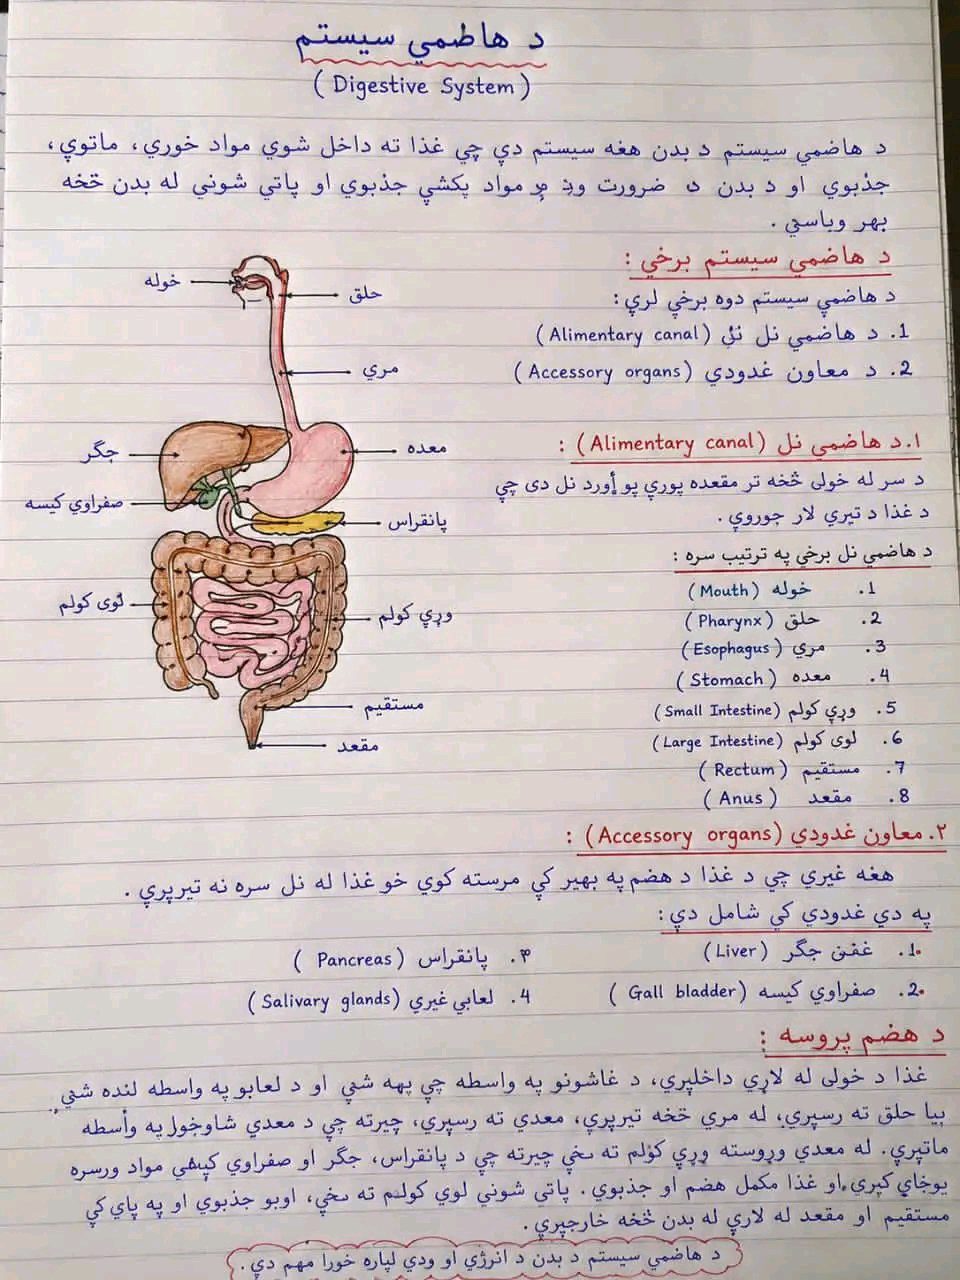 د هاضمي سیستم
( Digestive System )
د هاضمي سیستم د بدن هغه سیستم دي چي غذا ته داخل شوي مواد خوري، ماتوي،
جذبوي او د بدن د ضرورت وړ مواد پکښي جذبوي او پاتي شوني له بدن څخه
بهر وباسي .
د هاضمي سیستم برخي :
د هاضمي سیستم دوه برخي لري :
1. د هاضمي نل (Alimentary canal)
2. د معاون غدودي (Accessory organs)
خوله
حلق
مري
جگر
معده
صفراوي کیسه
پانقراس
لوی کولم
وړي کولم
مستقیم
مقعد
۱. د هاضمي نل (Alimentary canal) :
د سر له خولی څخه تر مقعده پوري یو اوږد نل دی چي
د غذا د تیري لار جوړوي .
د هاضمي نل برخي په ترتیب سره :
1. خوله (Mouth)
2. حلق (Pharynx)
3. مري (Esophagus)
4. معده (Stomach)
5. وړي کولم (Small Intestine)
6. لوی کولم (Large Intestine)
7. مستقیم (Rectum)
8. مقعد (Anus)
۲. معاون غدودي (Accessory organs) :
هغه غیري چي د غذا د هضم په بهیر کي مرسته کوي خو غذا له نل سره نه تیرېږي .
په دي غدودي کي شامل دي :
1. جگر (Liver)
2. صفراوي کیسه (Gall bladder)
۳. پانقراس (Pancreas)
4. لعابي غیري (Salivary glands)
د هضم پروسه :
غذا د خولی له لاري داخلېږي، د غاښونو په واسطه چي پهه شي او د لعابو په واسطه لنده شي
بیا حلق ته رسېږي، له مري څخه تیرېږي، معدي ته رسېږي، چیرته چي د معدي په واسطه
ماتېږي. له معدي وروسته وړي کولم ته ځي چیرته چي د پانقراس، جگر او صفراوي کیسي مواد ورسره
یوځای کېږي او غذا مکمل هضم او جذبوي . پاتي شوني لوي کولم ته ځي، اوبو جذبوي او په پای کي
مستقیم او مقعد له لاري له بدن څخه خارجېږي .
د هاضمي سیستم د بدن د انرژي او ودي لپاره خورا مهم دي .